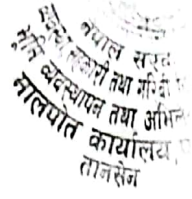 नेपाल सरका
व्यवस्था, सहकारी तथा गरिबी
भूमि व्यवस्थापन तथा अभिले
मालपोत कार्यालय,
तानसेन